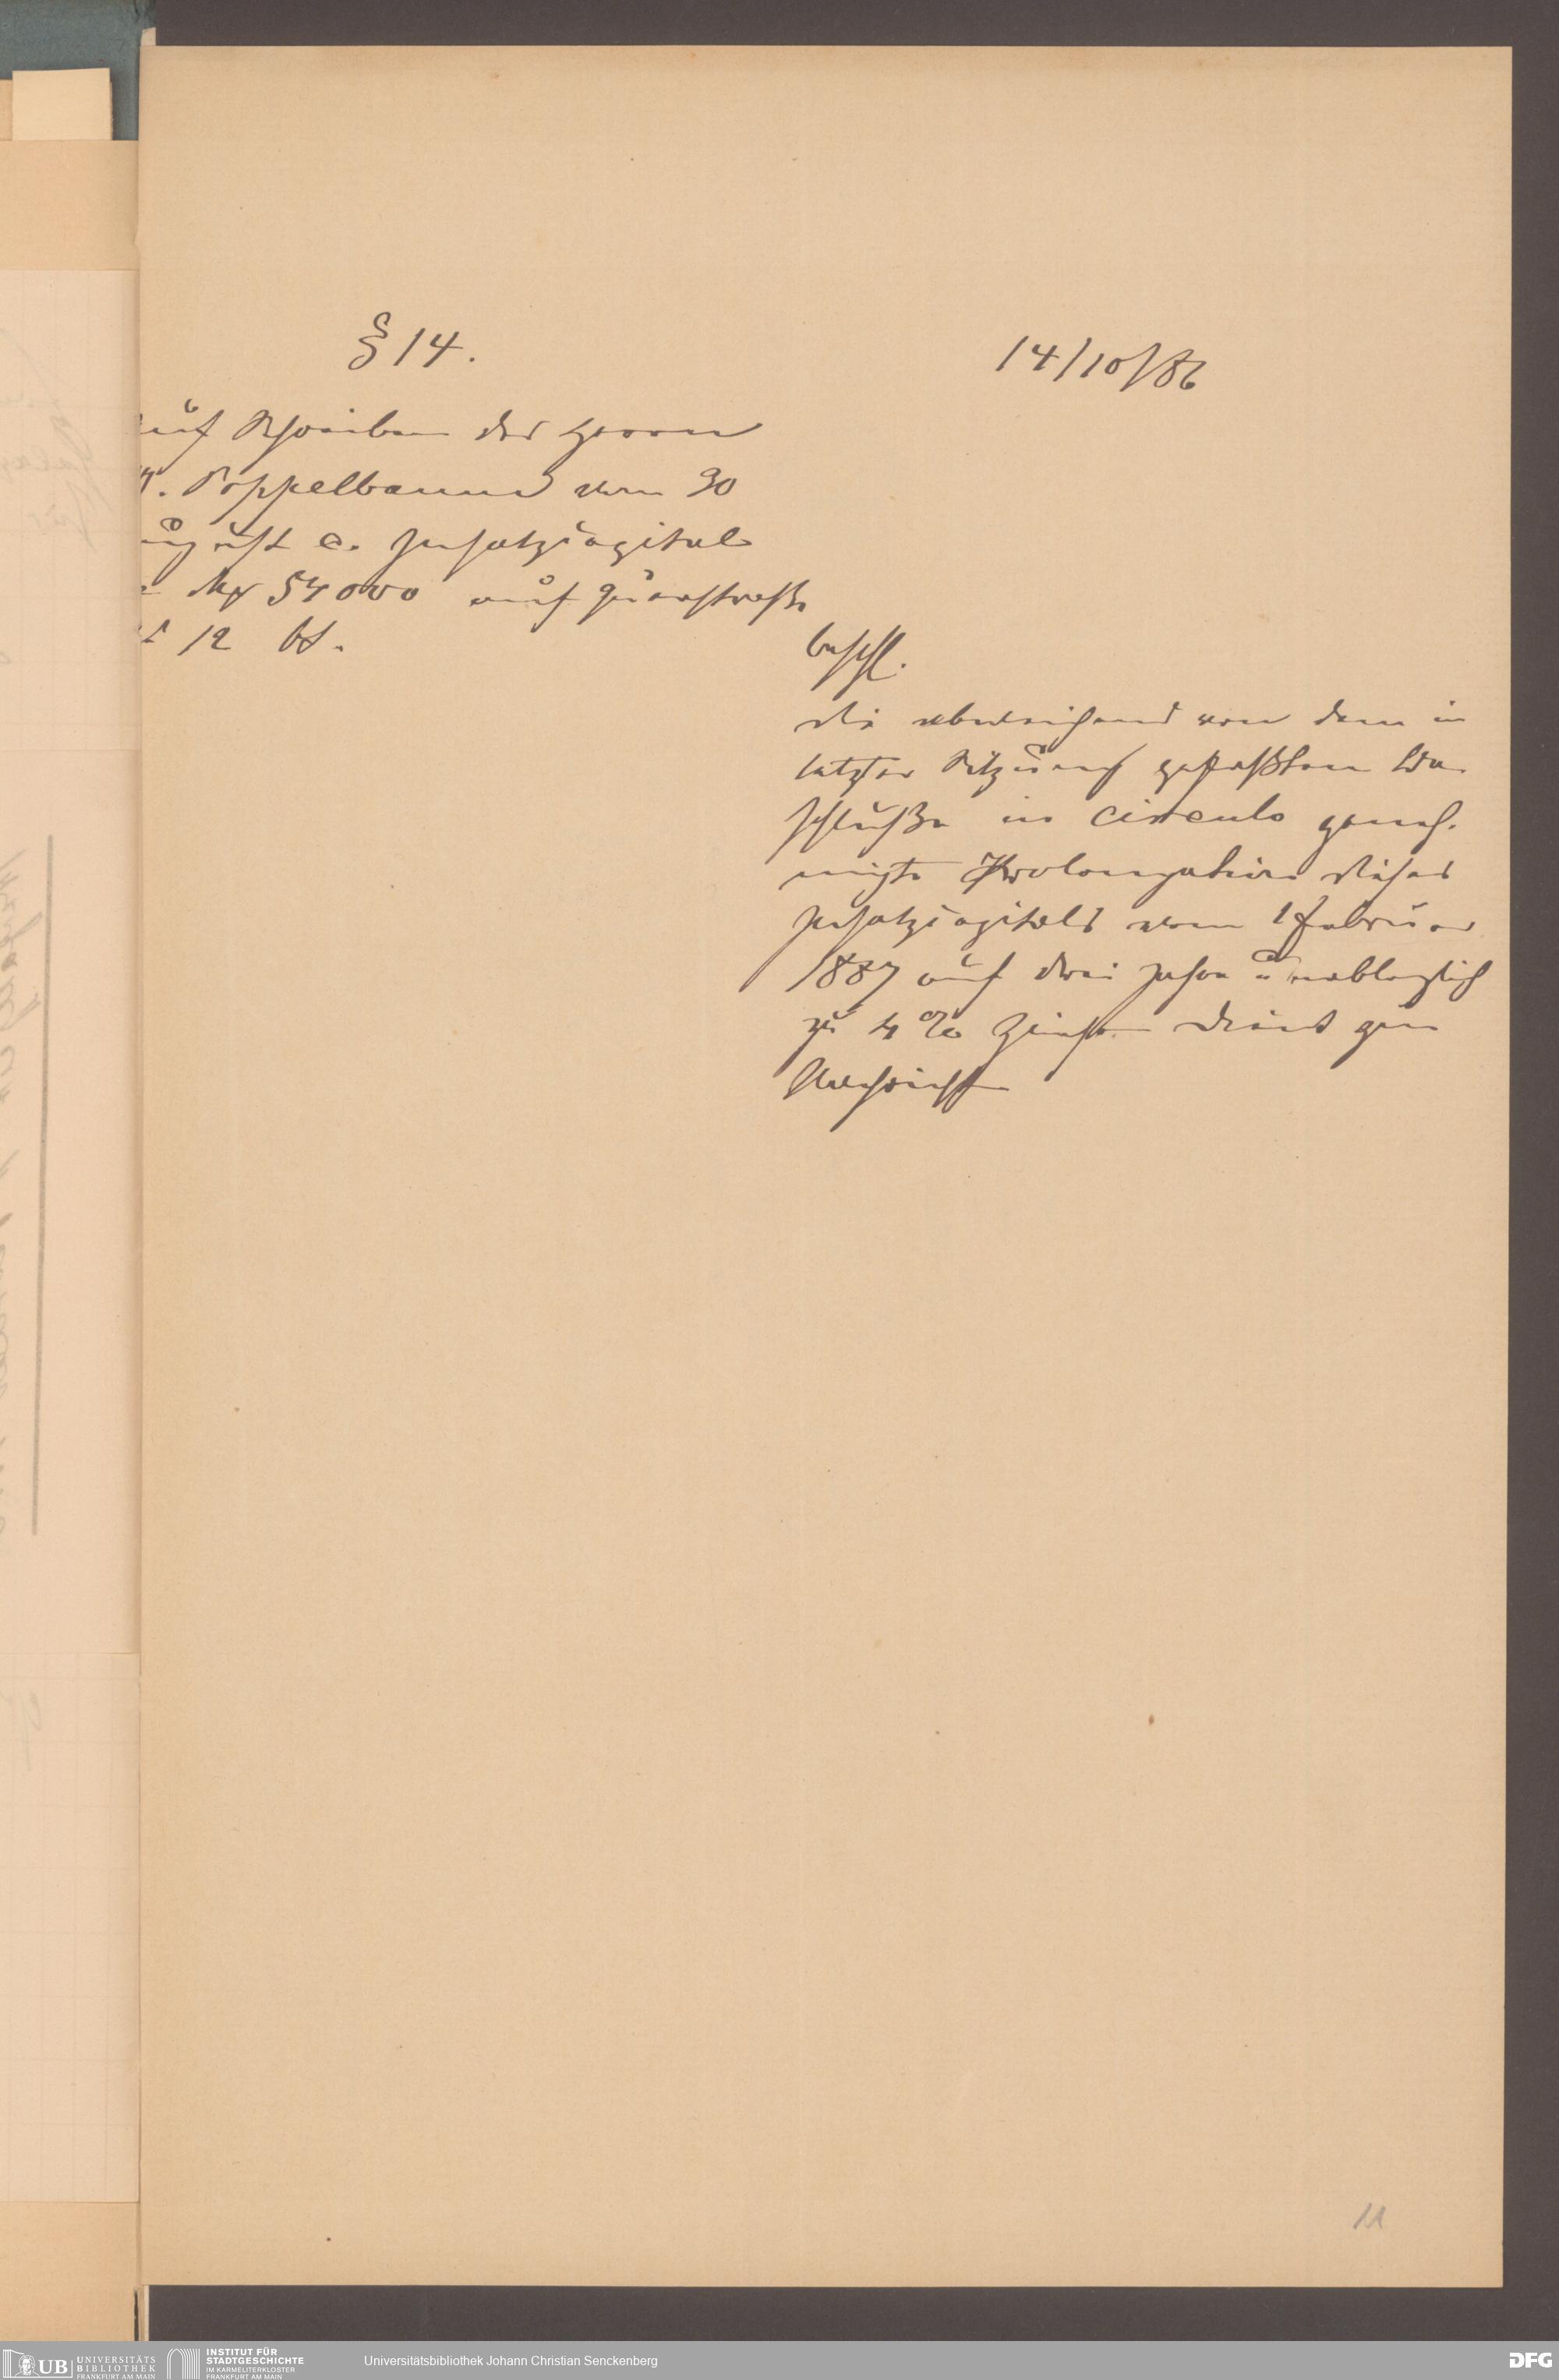 § 14.
14/10/86
auf Schreiben des Herrn
Poppelbaum vom 30
August c. Insatzcapital
Mk 54000 auf Querstraße
12 btf.
beschl.
die abweichend von dem in
letzter Sitzung gefaßten Be-
schluße in circulo geneh-
migte Prolongation dieses
Insatzcapitals vom 1 Februar
1887 auf drei Jahre unableglich
zu 4% Zinsen dient zur
Nachricht
11
UB UNIVERSITÄTS
BIBLIOTHEK
FRANKFURT AM MAIN
INSTITUT FÜR
STADTGESCHICHTE
IM KARMELITERKLOSTER
FRANKFURT AM MAIN
Universitätsbibliothek Johann Christian Senckenberg
DFG